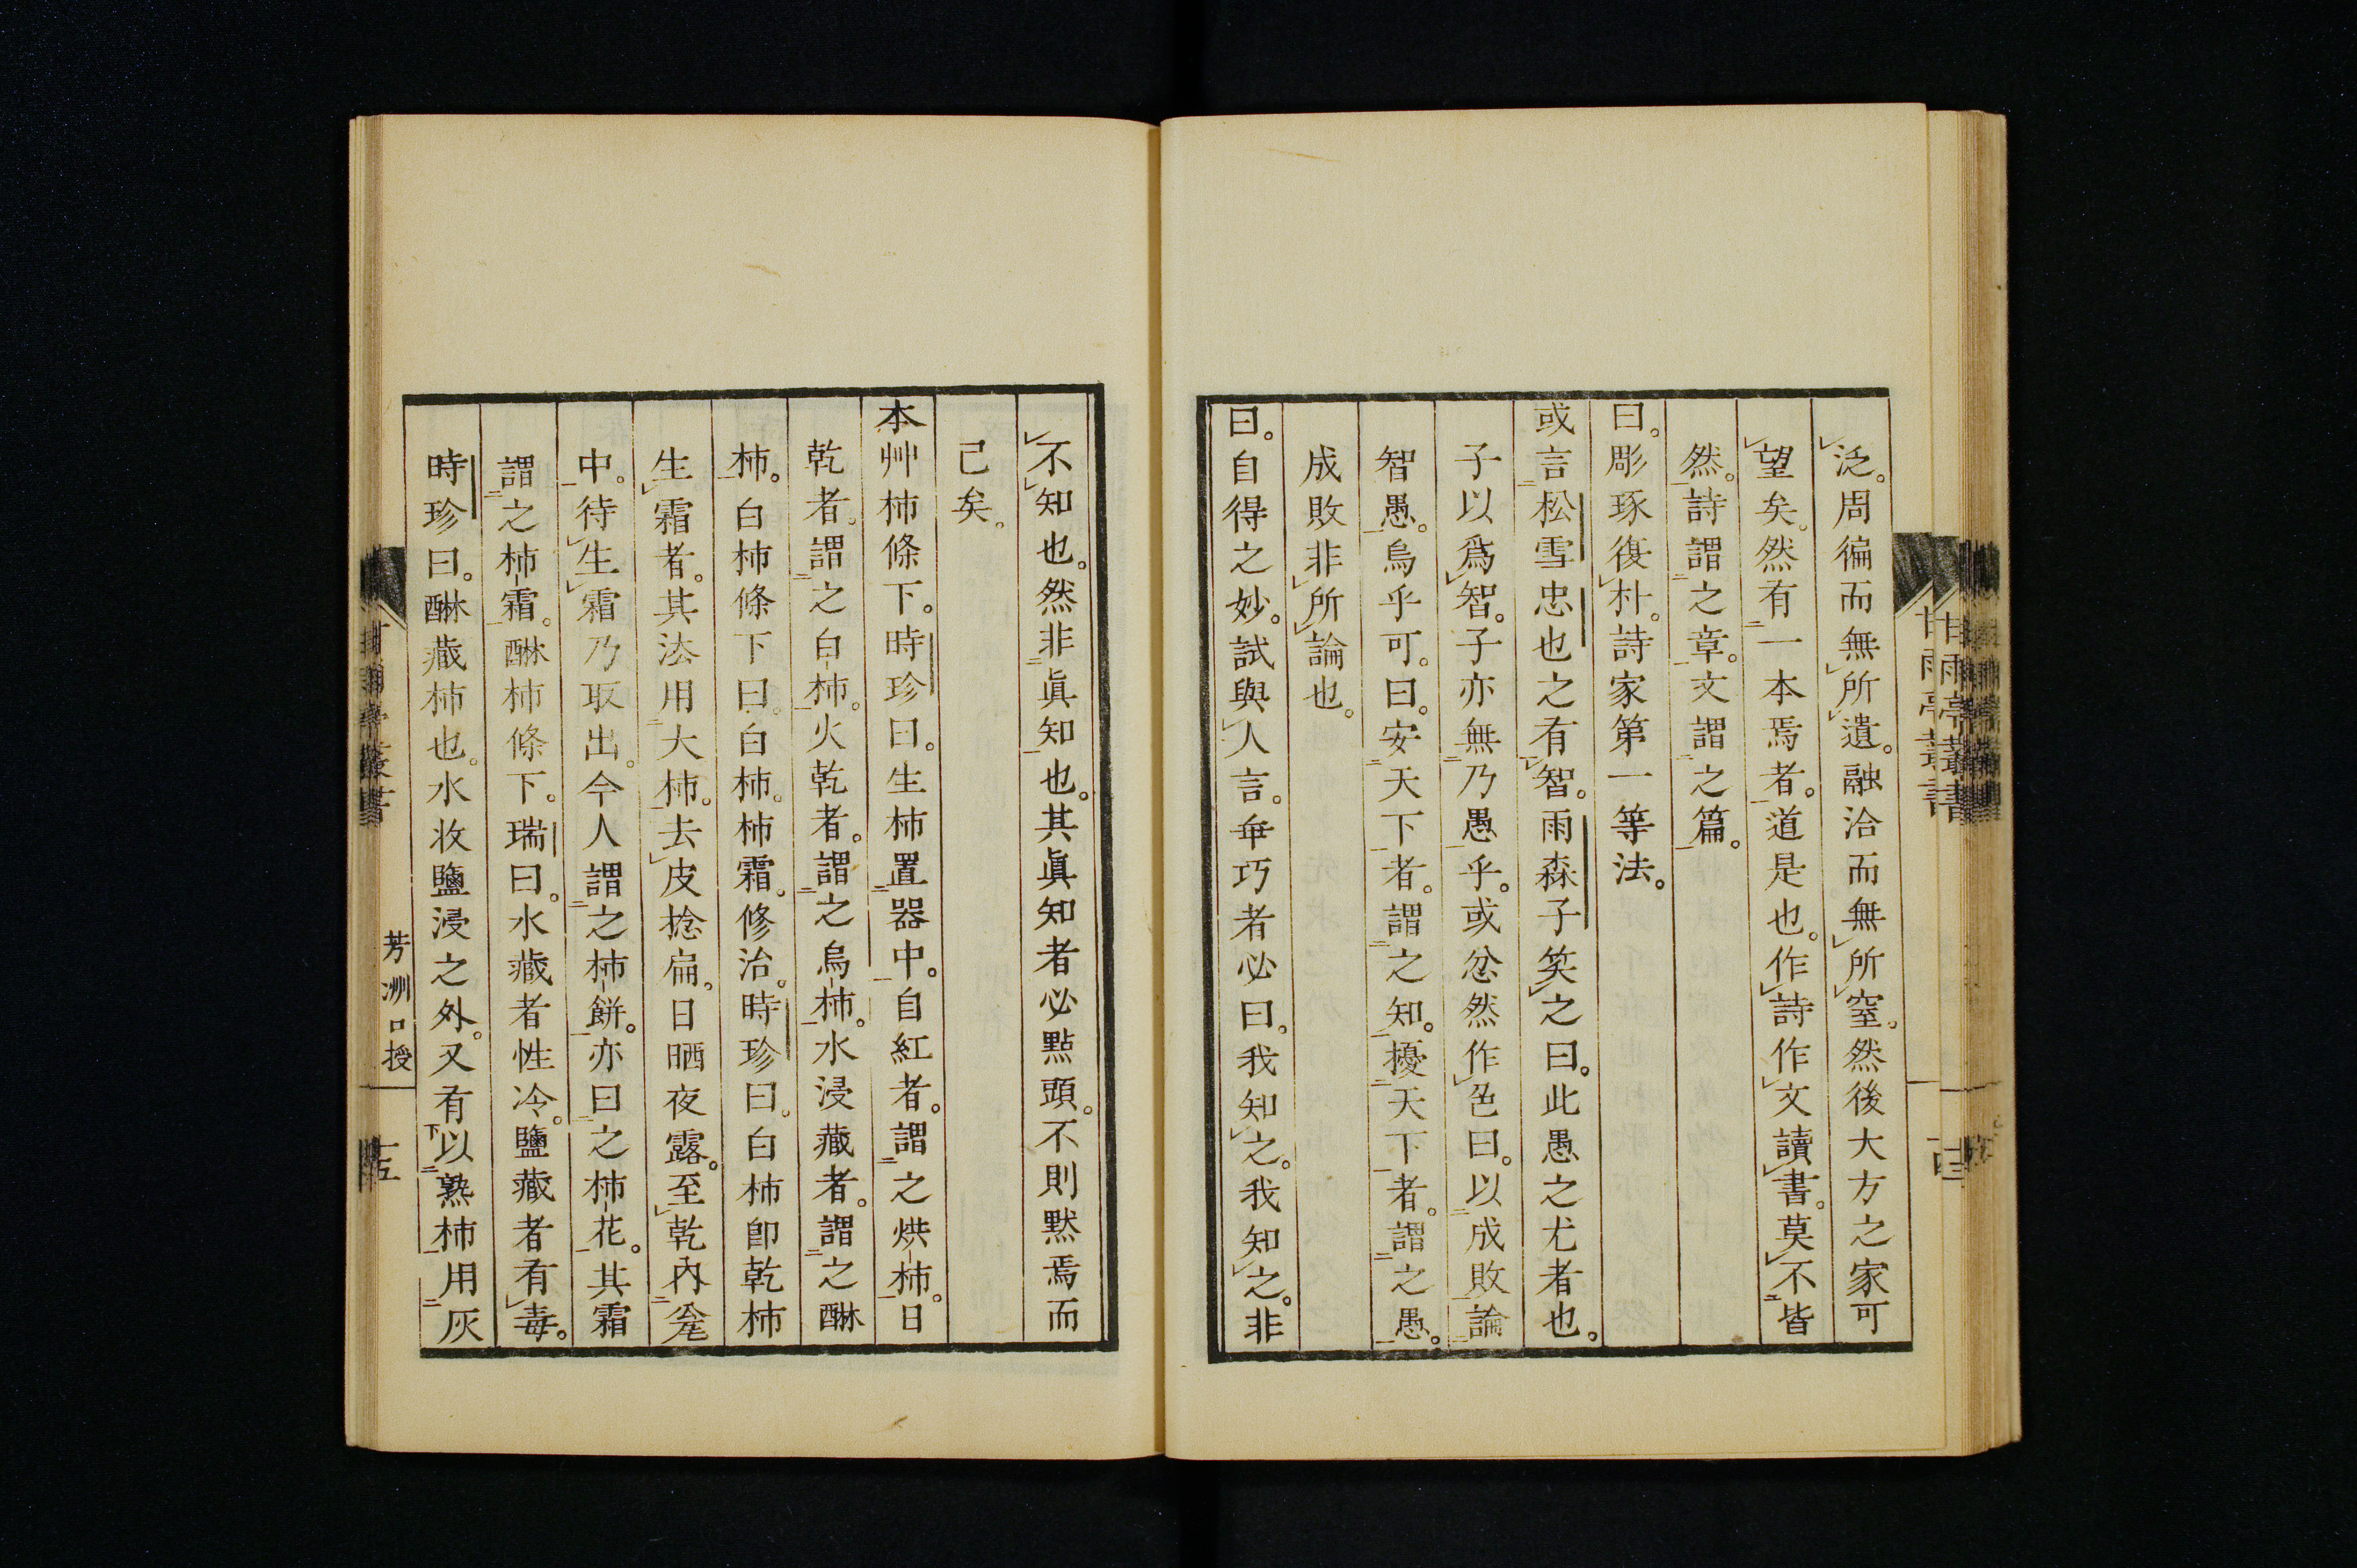 泛。周徧而無所遺。融洽而無所窒。然後大方之家可
望矣。然有一本焉者。道是也。作詩作文讀書。莫不皆
然。詩謂之章。文謂之篇。
曰。彫琢復朴。詩家第一等法。
或言松雪忠也之有智。雨森子笑之曰。此愚之尤者也。
子以爲智。子亦無乃愚乎。或忿然作色曰。以成敗論
智愚。烏乎可。曰。安天下者。謂之知。擾天下者。謂之愚。
成敗非所論也。
曰。自得之妙。試與人言。弄巧者必曰。我知之。我知之。非
甘雨亭叢書
不知也。然非眞知也。其眞知者必點頭。不則默焉而
已矣。
本艸柿條下。時珍曰。生柿置器中。自紅者。謂之烘柿。日
乾者。謂之白柿。火乾者。謂之烏柿。水浸藏者。謂之醂
柿。白柿條下曰。白柿。柿霜。修治。時珍曰。白柿卽乾柿
生霜者。其法用大柿。去皮捻扁。日晒夜露。至乾內瓮
中。待生霜乃取出。今人謂之柿餅。亦曰之柿花。其霜
謂之柿霜。醂柿條下。瑞曰。水藏者性冷。鹽藏者有毒。
時珍曰。醂藏柿也。水收鹽浸之外。又有以熟柿用灰
芳洲口授